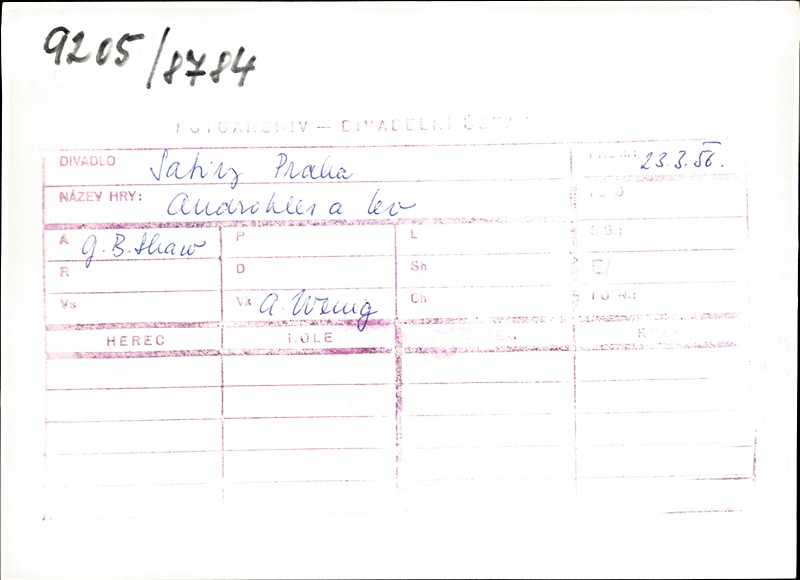 9205/8784
FOTOARCHIV — DIVADELNÍ ÚSTAV
DIVADLO Satiry Praha 23.3.56.
NÁZEV HRY: Androkles a lev
A G. B. Shaw P L
R D Sh
Vs Vk A. Wenig Ch
HEREC ROLE